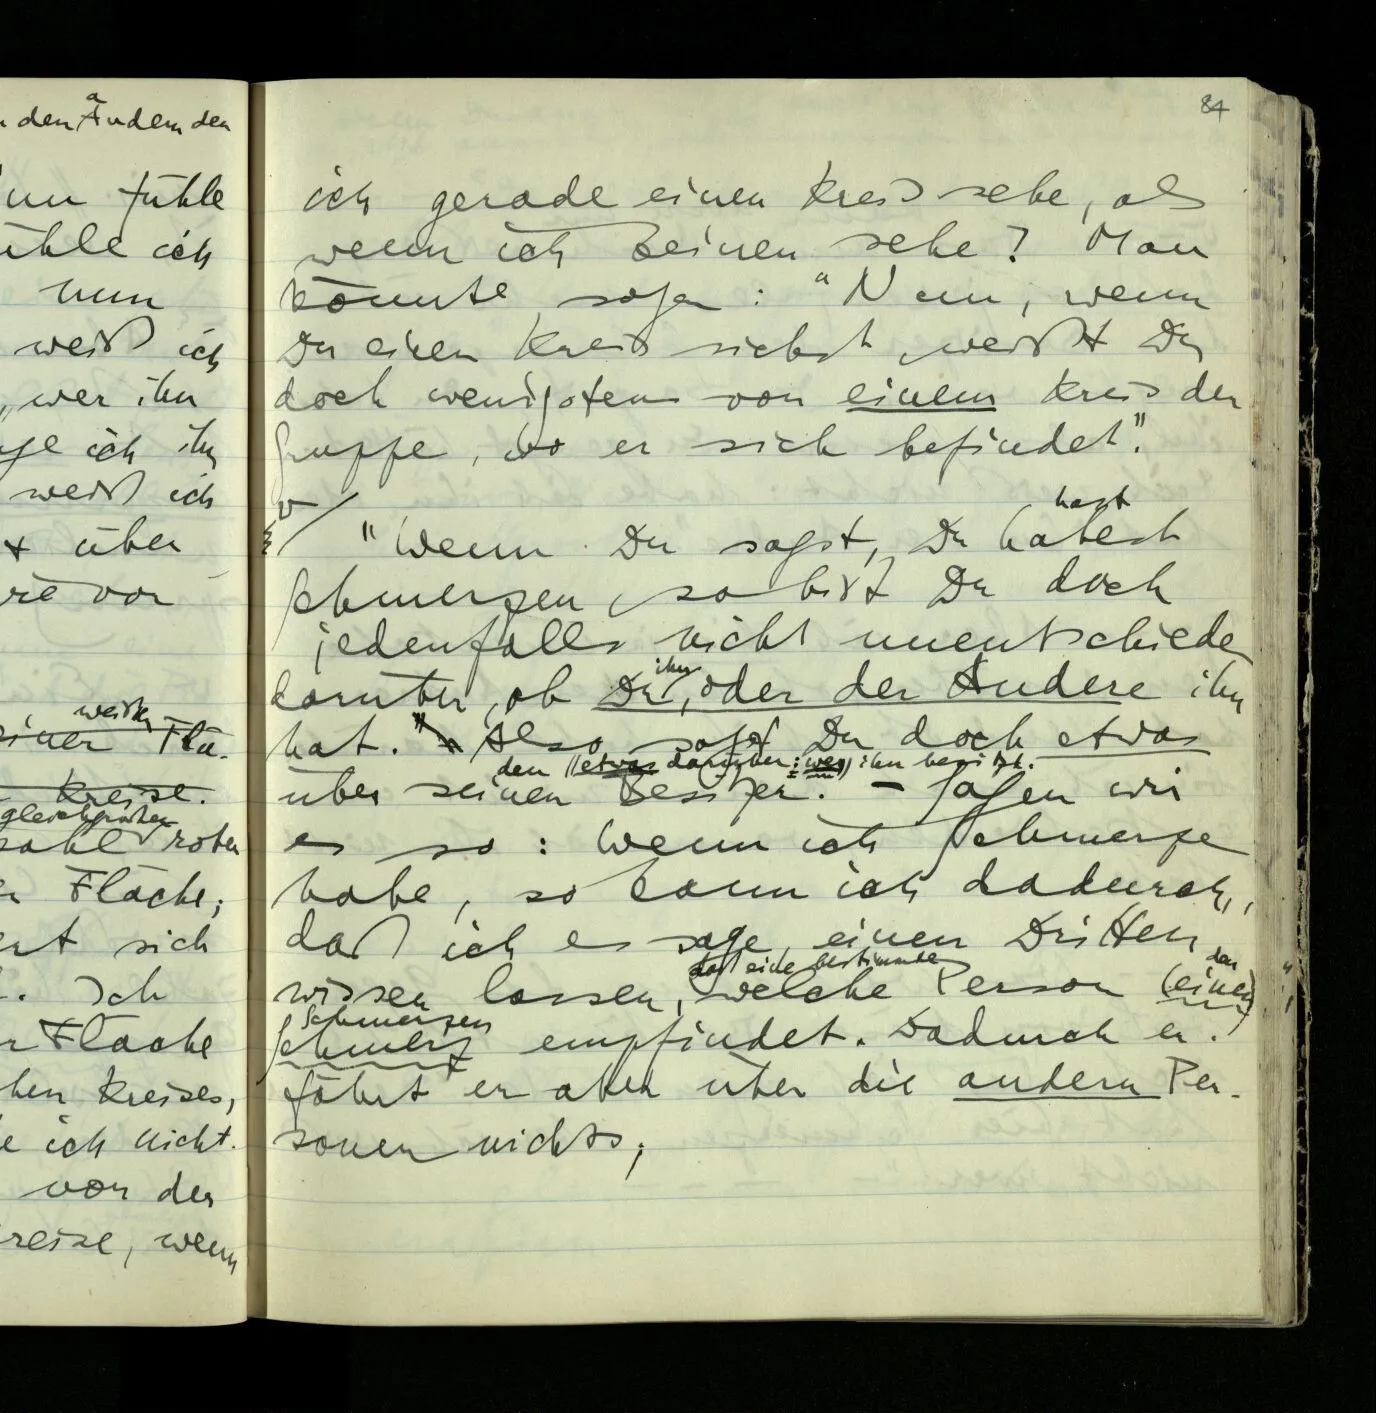 den Andern den
a
fühle
ühle ich
nun
weiß ich
wer ihn
ich ihn
weiß ich
über
vor
weißen
einer Flä-
Kreise.
gleichgroßen
roten
Fläche;
sich
Ich
Fläche
Kreises,
ich nicht.
von der
Kreise, wenn
84
ich gerade einen Kreis sehe, als
wenn ich keinen sehe? Man
könnte sagen: "Nun, wenn
Du einen Kreis siehst, weißt Du
doch wenigstens von einem Kreis der
Gruppe, wo er sich befindet".
hast
"Wenn Du sagst, Du habest
Schmerzen, so bist Du doch
jedenfalls nicht unentschieden
ihn
darüber, ob Du, oder der Andere ihn
hat." Also sagst Du doch etwas
den etwas darüber: wer ihn besitzt.
über seinen Besitzer. – Sagen wir
es so: Wenn ich Schmerzen
habe, so kann ich dadurch,
daß ich es sage, einen Dritten
daß eine bestimmte den
wissen lassen, welche Person (einen
Schmerzen
Schmerz) empfindet. Dadurch er-
fährt er aber über die andern Per-
sonen nichts;